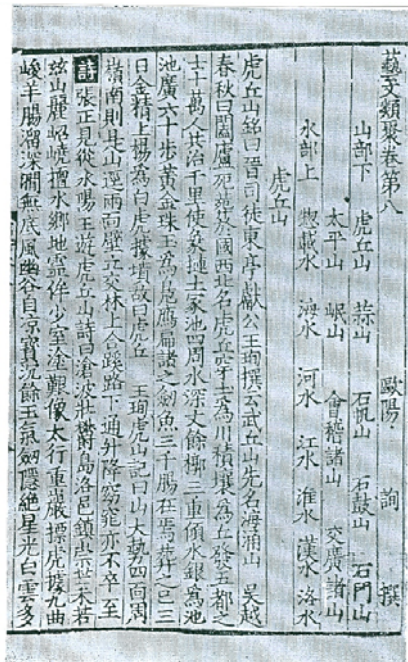 藝文類聚卷第八
歐陽詢撰
山部下 虎丘山 蒜山 石帆山 石鼓山 石門山
太平山 岷山 會稽諸山 交廣諸山
水部上 惣載水 海水 河水 江水 淮水 漢水 洛水
虎丘山
虎丘山銘曰晉司徒東亭獻公王珣撰云武丘山先名海涌山 吳越
春秋曰闔廬死葬於國西北名虎丘穿土為川積壤為丘發五都之
士十萬人共治千里使象摙土冢池四周水深丈餘槨三重傾水銀為池
池廣六十步黃金珠玉為鳧鴈扁諸之劒魚三千腸在焉葬之已三
日金精上揚為白虎據墳故曰虎丘 王珣虎山記曰山大勢四面周
嶺南則是山逕兩面壁立交林上合蹊路下通升降窈窕亦不卒至
詩張正見從永陽王遊虎丘山詩曰滄波壯欝島洛邑鎮崇芒未若
茲山麗岧嶢擅水鄉地靈侔少室塗艱像太行重巖摽虎據九曲
峻羊腸溜深澗無底風幽谷自涼寶沉餘玉氣劒隱絕星光白雲多